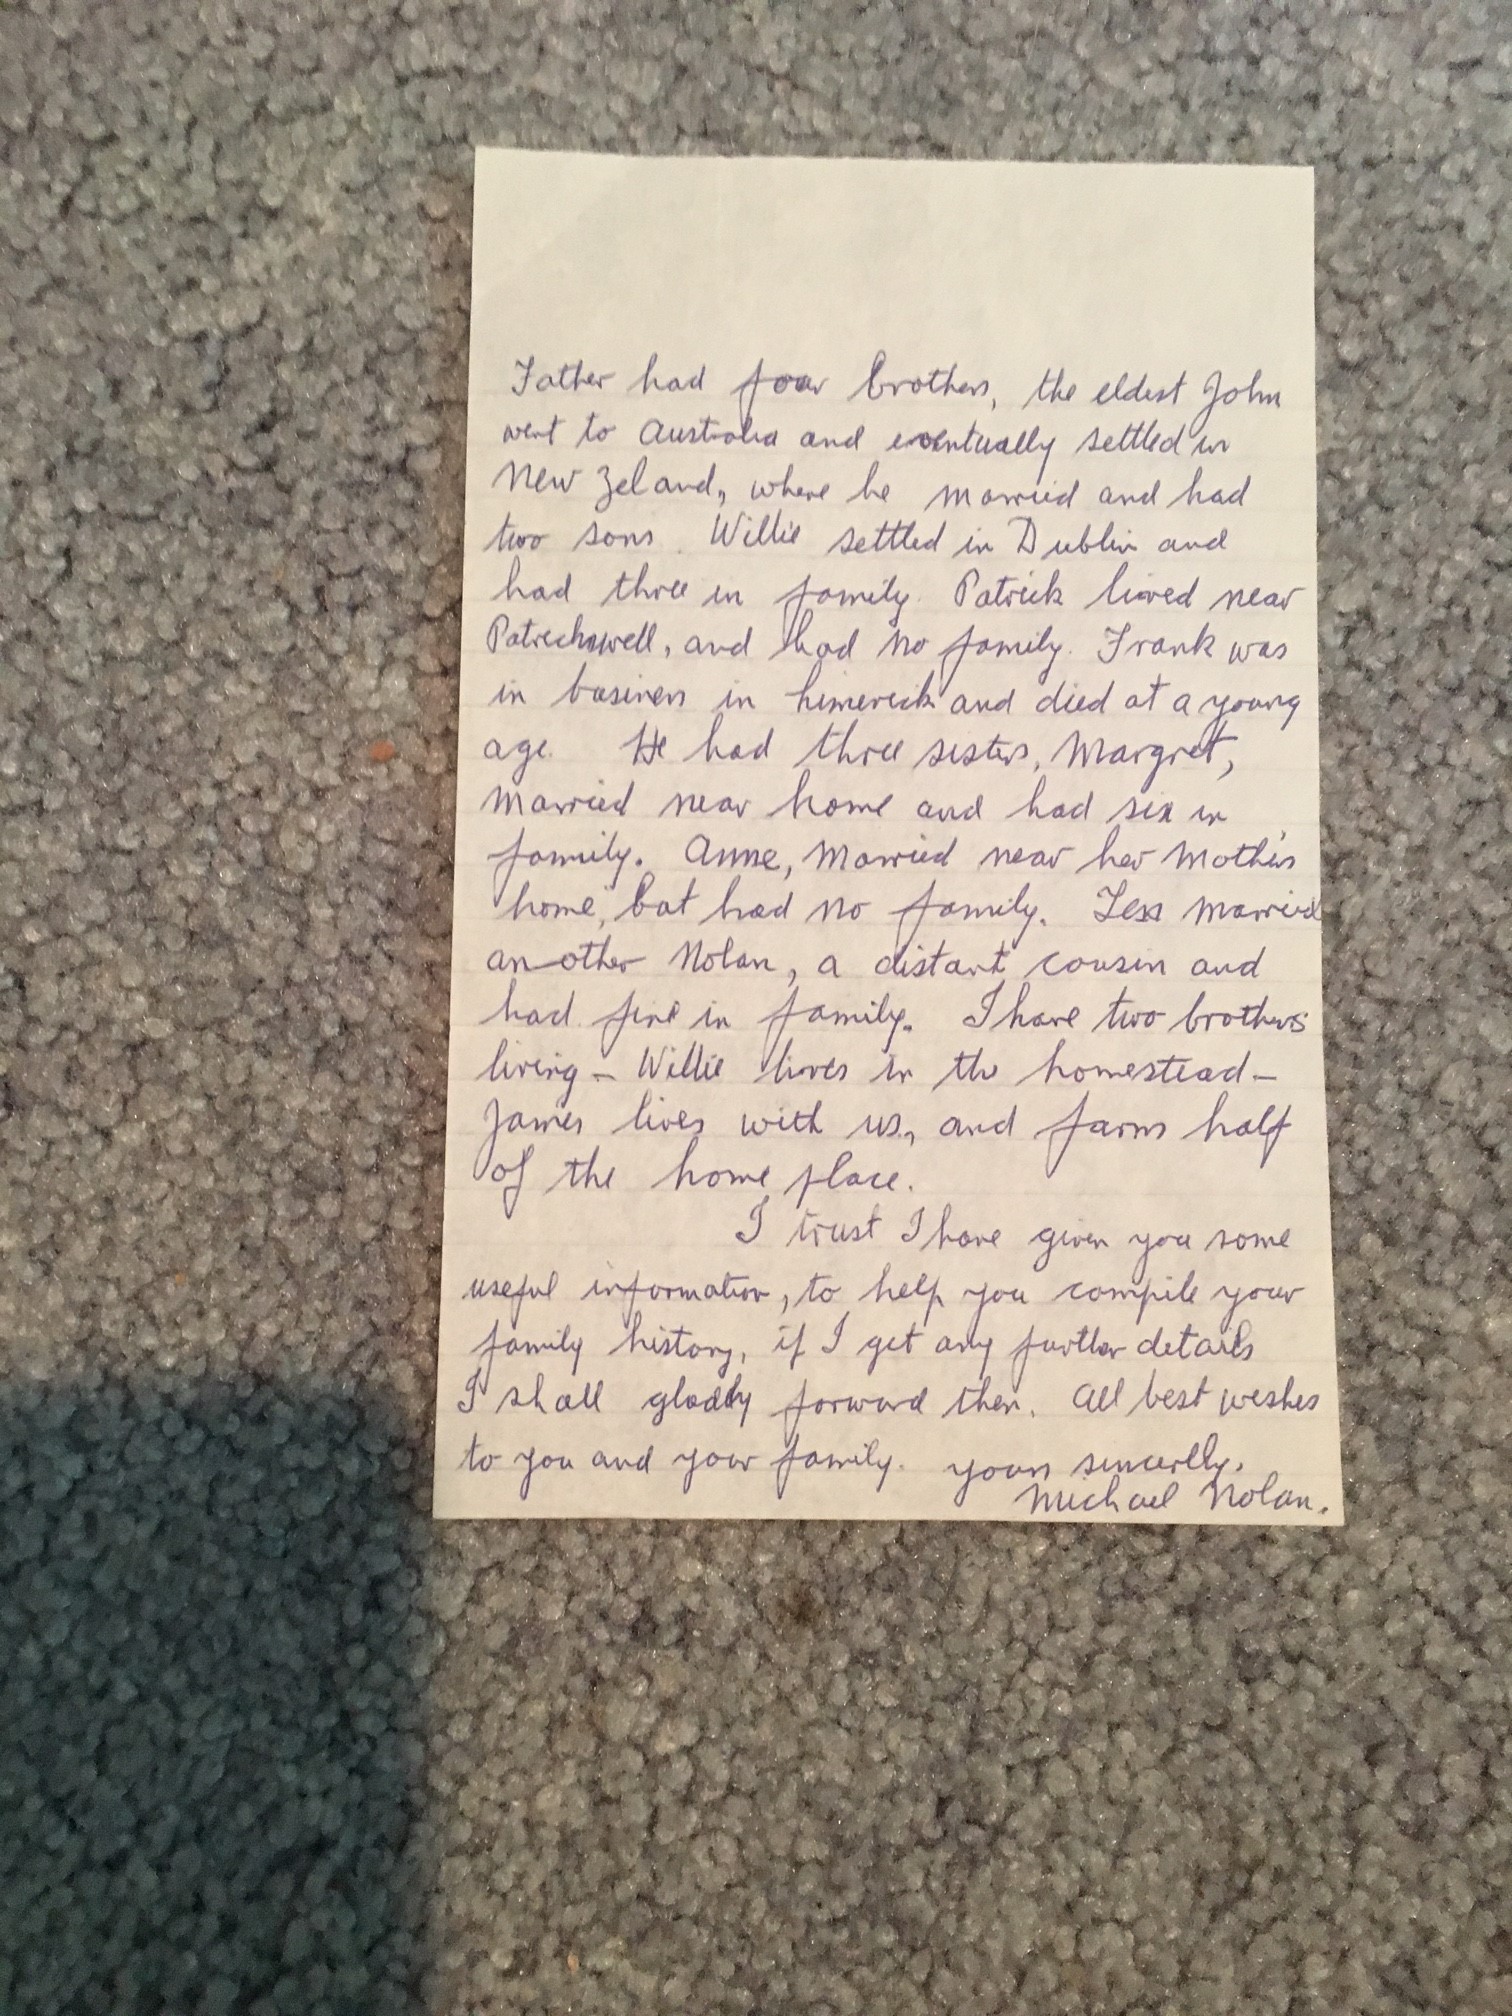 Father had four brothers, the eldest John
went to Australia and eventually settled in
New Zeland, where he married and had
two sons. Willie settled in Dublin and
had three in family. Patrick lived near
Patrickswell, and had no family. Frank was
in business in Limerick and died at a young
age. He had three sisters, Margret,
Married near home and had six in
family. Anne, Married near her Mother's
home, but had no family. Tess Married
another Nolan, a distant cousin and
had five in family. I have two brothers
living - Willie lives in the homestead -
James lives with us, and farms half
of the home place.
I trust I have given you some
useful information, to help you compile your
family history, if I get any further details
I shall gladly forward them. All best wishes
to you and your family. yours sincerlly.
Michael Nolan.